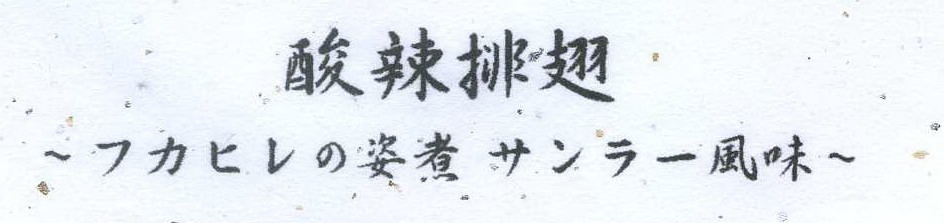 酸辣排翅
～フカヒレの姿煮 サンラー風味～